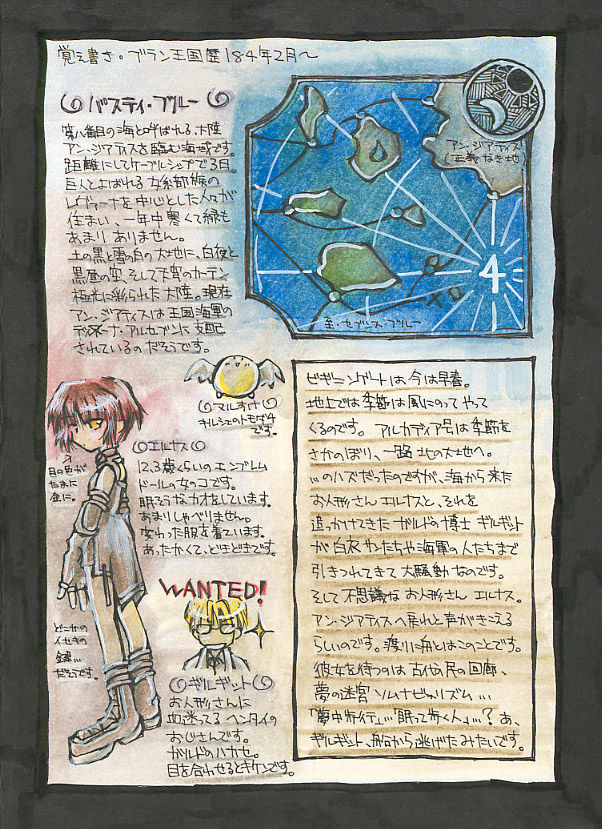 覚え書き。ブラン王国歴184年2月〜
バスティ・ブルー
第八番目の海と呼ばれる、大陸
アン・ジアティスを臨む海域です。
距離にしてケーブルシップで3日。
巨人とよばれる女系部族の
レヴィーナを中心とした人々が
住まい、一年中寒くて緑も
あまりありません。
土の黒と雪の白の大地に、白夜と
黒昼の空、そして下宵のカーテン
極光に彩られた大陸。現在
アン・ジアティスは王国海軍の
ディアーナ・アルセブンに支配
されているのだそうです。
アン・ジアティス
(正義なき地)
4
至・セブンス・ブルー
マルすけ
キルシェのトモダチ
です。
目の色が
たまに
金に。
エルナス
12、3歳くらいのエンブレム
ドールの女のコです。
眠そうなカオをしています。
あまりしゃべりません。
変わった服を着ています。
あったかくて、どきどきです。
どこかの
イセキの
鍵…
だそうです。
WANTED!
ギルギット
お人形さんに
血迷ってるヘンタイの
おじさんです。
ガルドのハカセ。
目を合わせるとキケンです。
ビギニングゲートは今は早春。
地上では季節は風にのってやって
くるのです。アルカディア号は季節を
さかのぼり、一路北の大地へ。
…のハズだったのですが、海から来た
お人形さんエルナスと、それを
追っかけてきたガルドの博士ギルギット
が白衣サンたちや海軍の人たちまで
引きつれてきて大騒動なのです。
そして不思議なお人形さんエルナス。
アン・ジアティスへ戻れと声がきこえる
らしいのです。渡りに舟とはこのことです。
彼女を待つのは古代の民の回廊、
夢の迷宮ソムナビゥリズム…
「夢中歩行」…"眠って歩く人"…?あ、
ギルギット、船から逃げたみたいです。